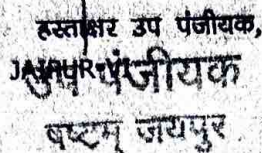 हस्ताक्षर उप पंजीयक,
JAIPUR-VI
उप पंजीयक
षष्टम् जयपुर